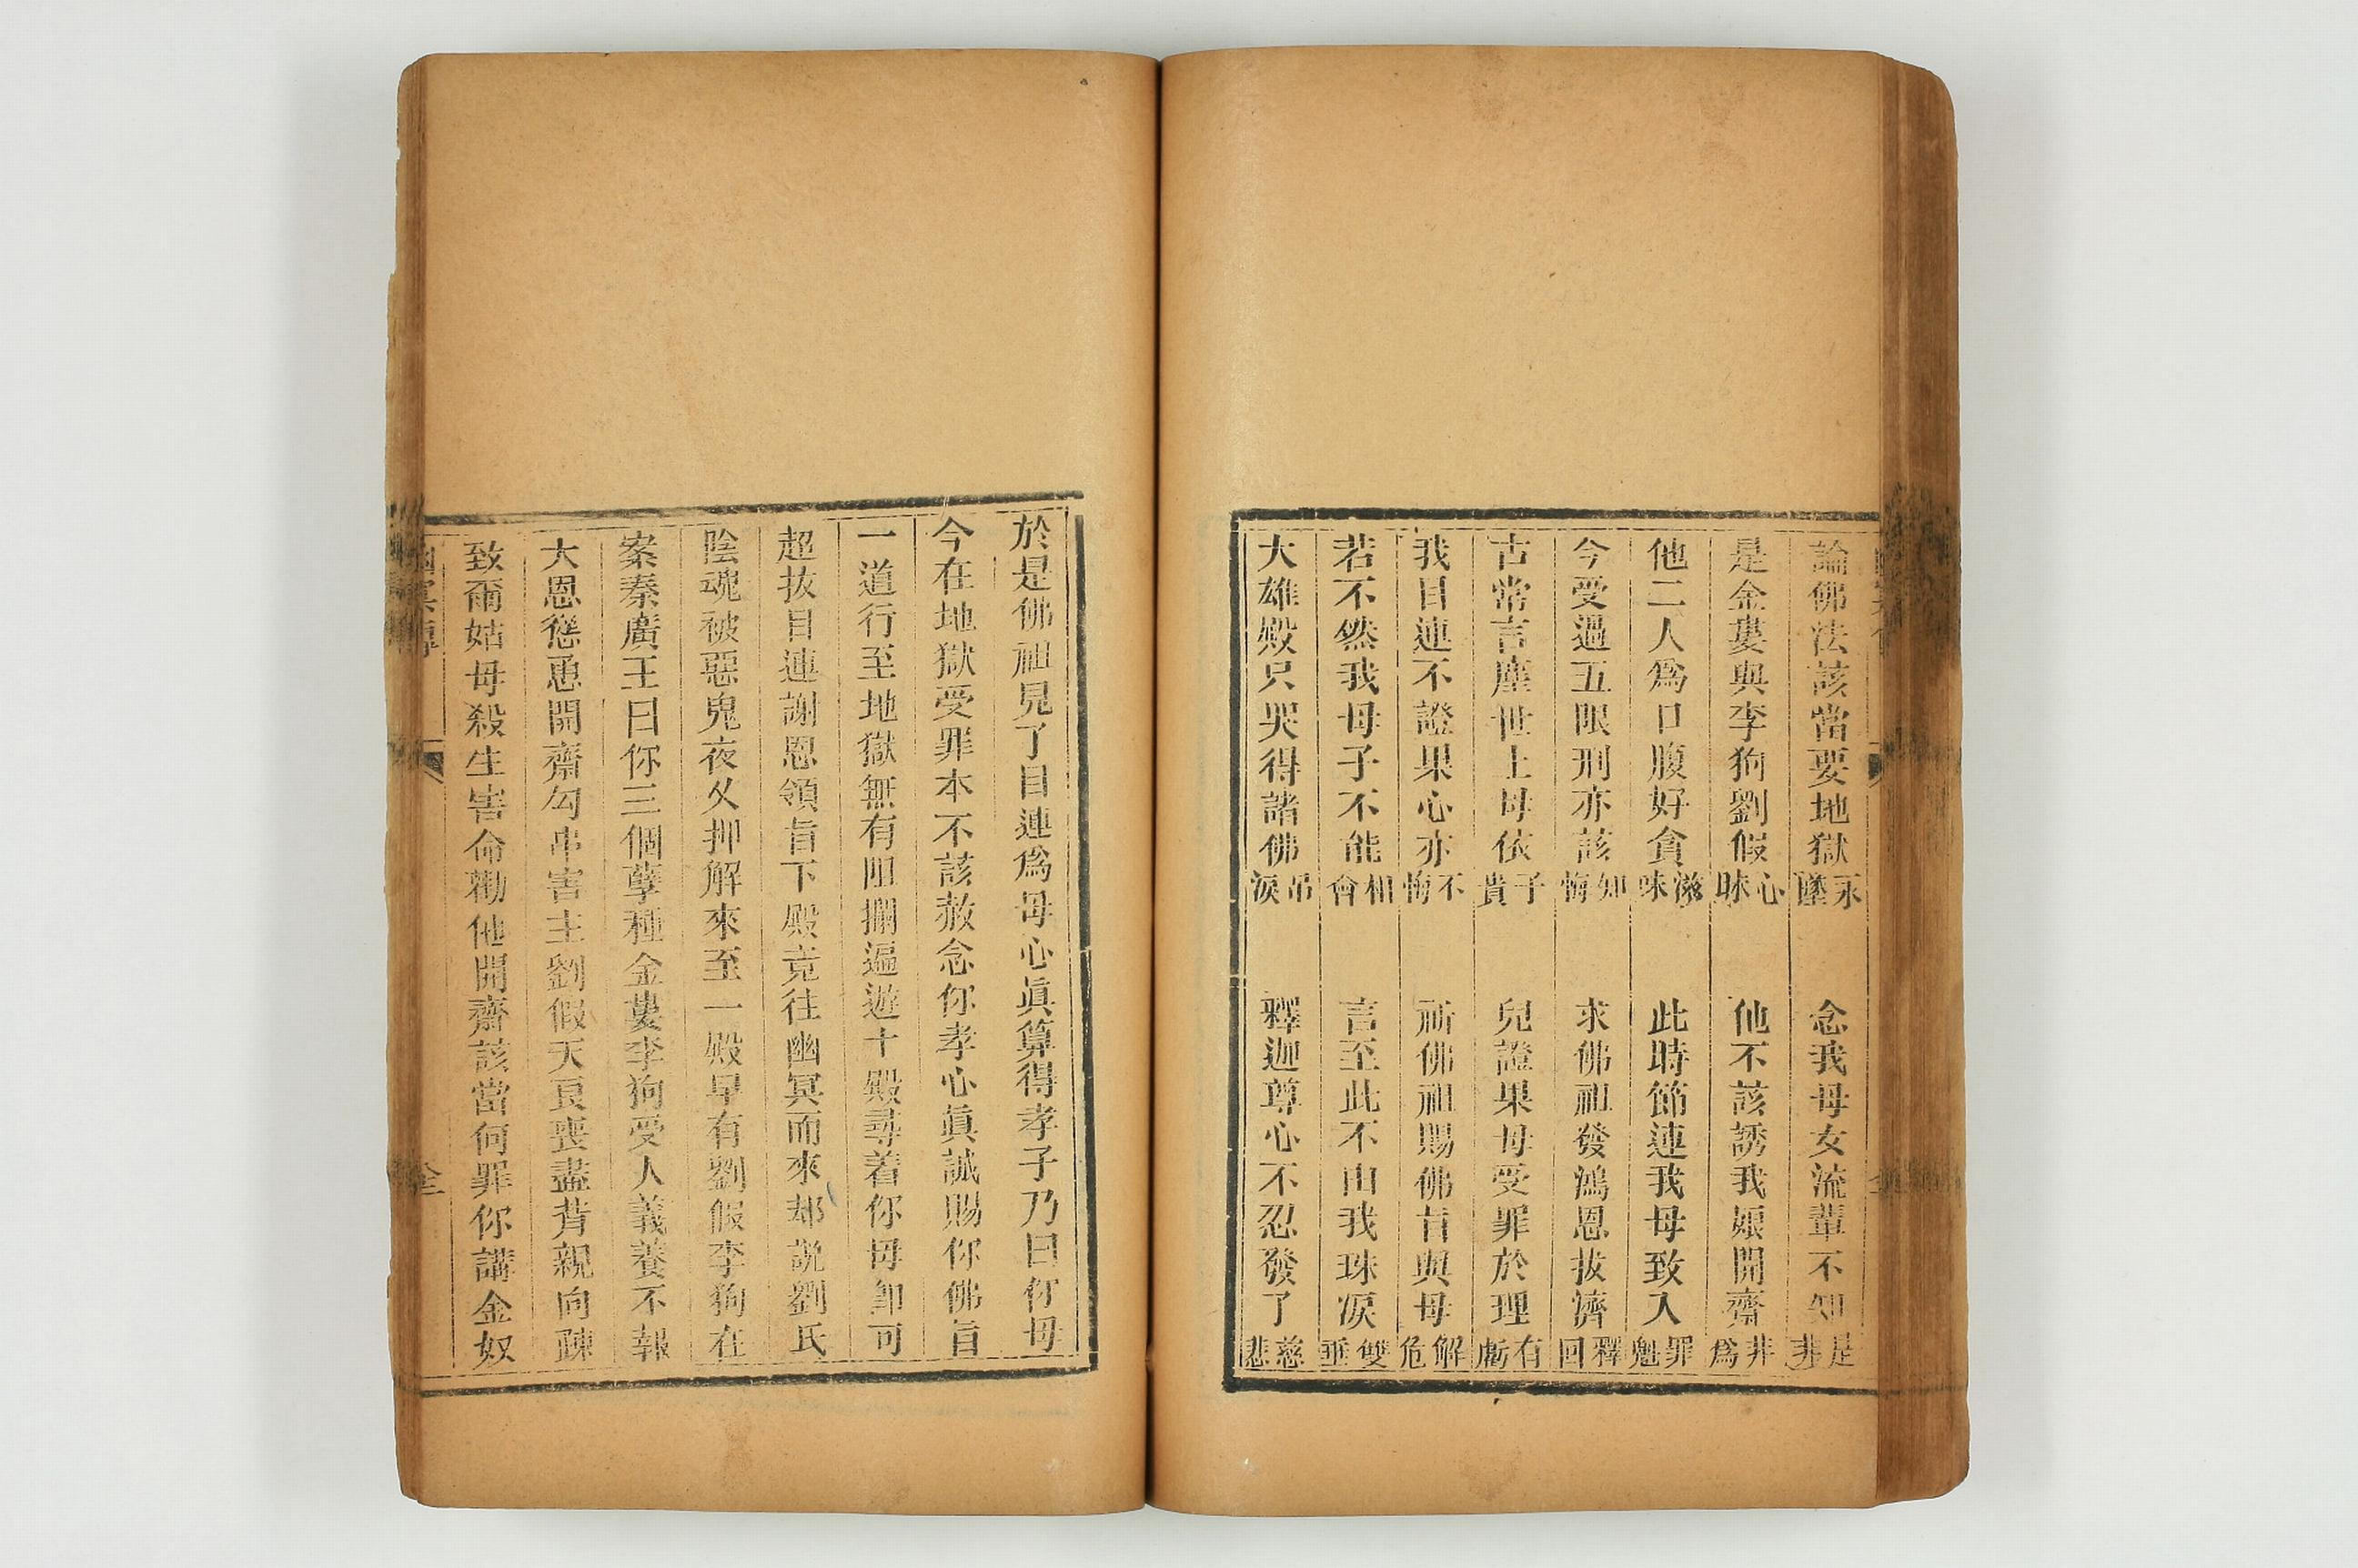 論佛法該當要地獄永墜　念我母女流輩不知是非
是金婁與李狗劉假心昧　他不該誘我娘開齋非爲
他二人爲口腹好貪滋味　此時節連我母致入罪魁
今受過五限刑亦該知悔　求佛祖發鴻恩拔濟釋回
古常言塵世上母依子貴　兒證果母受罪於理有虧
我目連不證果心亦不悔　祈佛祖賜佛旨與母解危
若不然我母子不能相會　言至此不由我珠淚雙垂
大雄殿只哭得諸佛吊淚　釋迦尊心不忍發了慈悲
於是佛祖見了目連爲母心眞算得孝子乃曰你母
今在地獄受罪本不該赦念你孝心眞誠賜你佛旨
一道行至地獄無有阻攔遍遊十殿尋着你母卽可
超拔目連謝恩領旨下殿竟往幽冥而來却說劉氏
陰魂被惡鬼夜乂押解來至一殿早有劉假李狗在
案秦廣王曰你三個孽種金婁李狗受人義養不報
大恩慫恿開齋勾串害主劉假天良喪盡背親向疎
致爾姑母殺生害命勸他開齋該當何罪你講金奴
幽冥傳　全